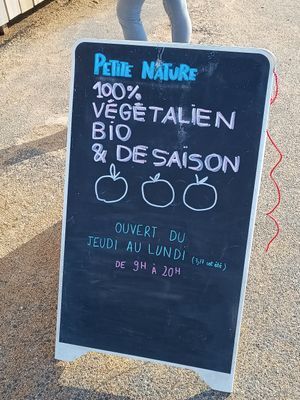 PETITE NATURE
100%
VÉGÉTALIEN
BIO
& DE SAISON
OUVERT DU
JEUDI AU LUNDI (7J/7 cet été)
DE 9H À 20H